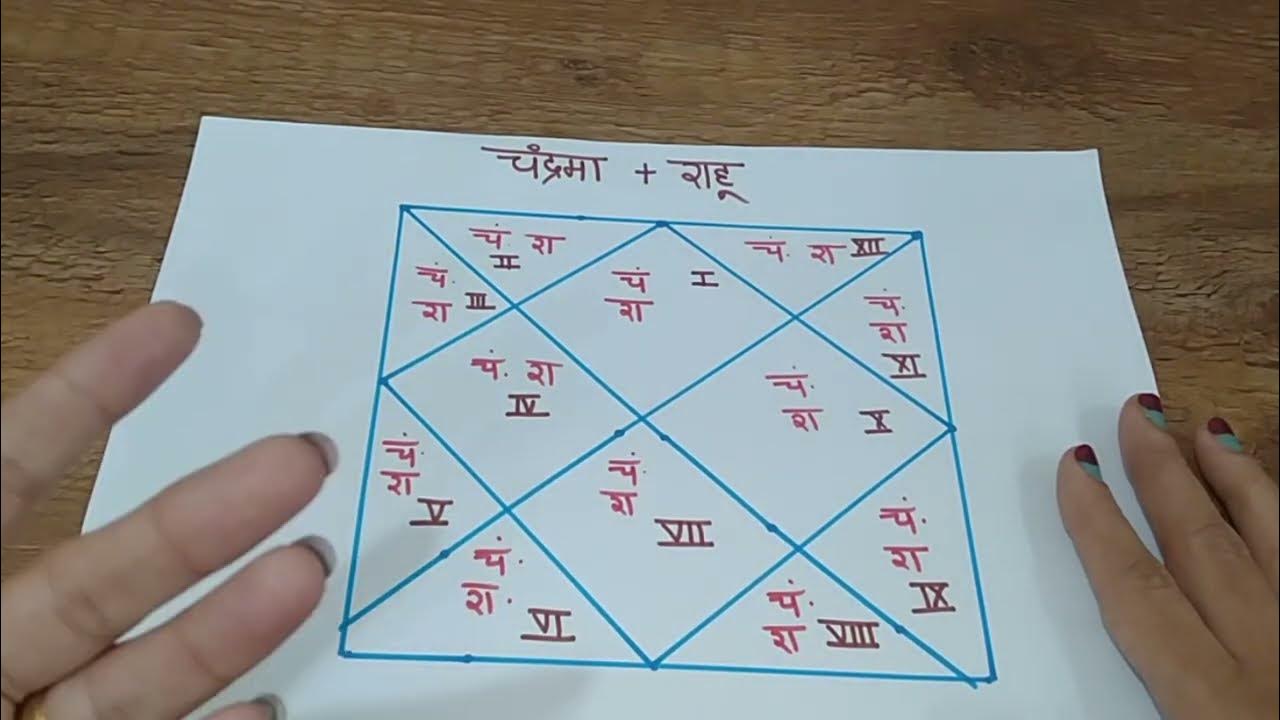 चंद्रमा + राहू
चं. रा
II
चं. रा XII
चं.
रा III
चं I
रा
चं.
रा
XI
चं. रा
IV
चं.
रा X
चं.
रा
V
चं.
रा
VII
चं.
रा
IX
चं.
रा.
VI
चं.
रा VIII